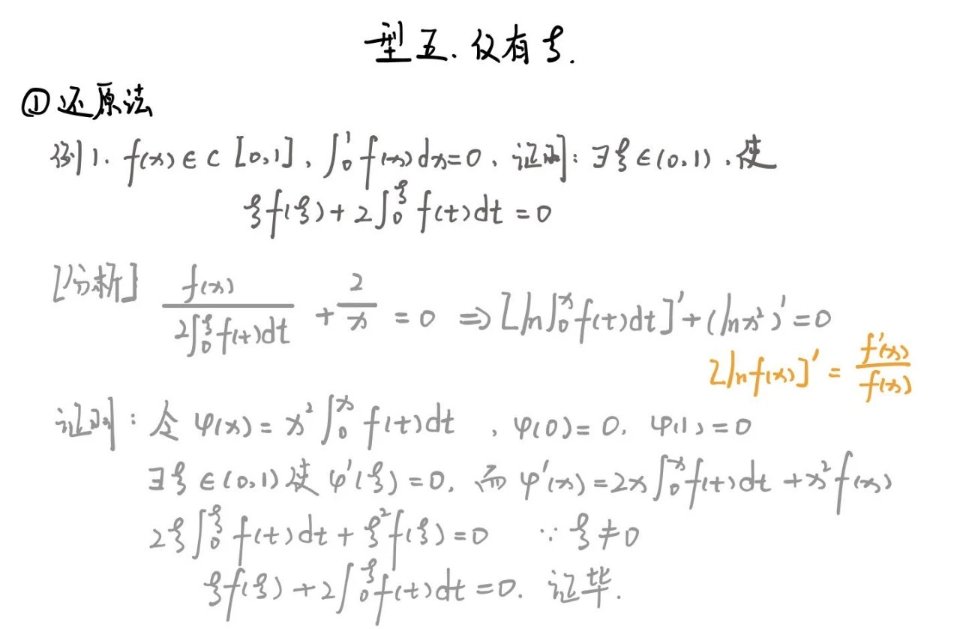 型五.仅有ξ.
①还原法
例1. f(x)∈C[0,1], ∫₀¹f(x)dx=0, 证明:∃ξ∈(0,1),使
ξf(ξ)+2∫₀^ξ f(t)dt=0
[分析] f(x)/(2∫₀^ξ f(t)dt) + 2/x = 0 ⇒ [ln∫₀^x f(t)dt]'+(lnx²)'=0
[lnf(x)]' = f'(x)/f(x)
证明:令φ(x)=x²∫₀^x f(t)dt , φ(0)=0, φ(1)=0
∃ξ∈(0,1)使φ'(ξ)=0, 而φ'(x)=2x∫₀^x f(t)dt+x²f(x)
2ξ∫₀^ξ f(t)dt+ξ²f(ξ)=0 ∵ξ≠0
ξf(ξ)+2∫₀^ξ f(t)dt=0. 证毕.